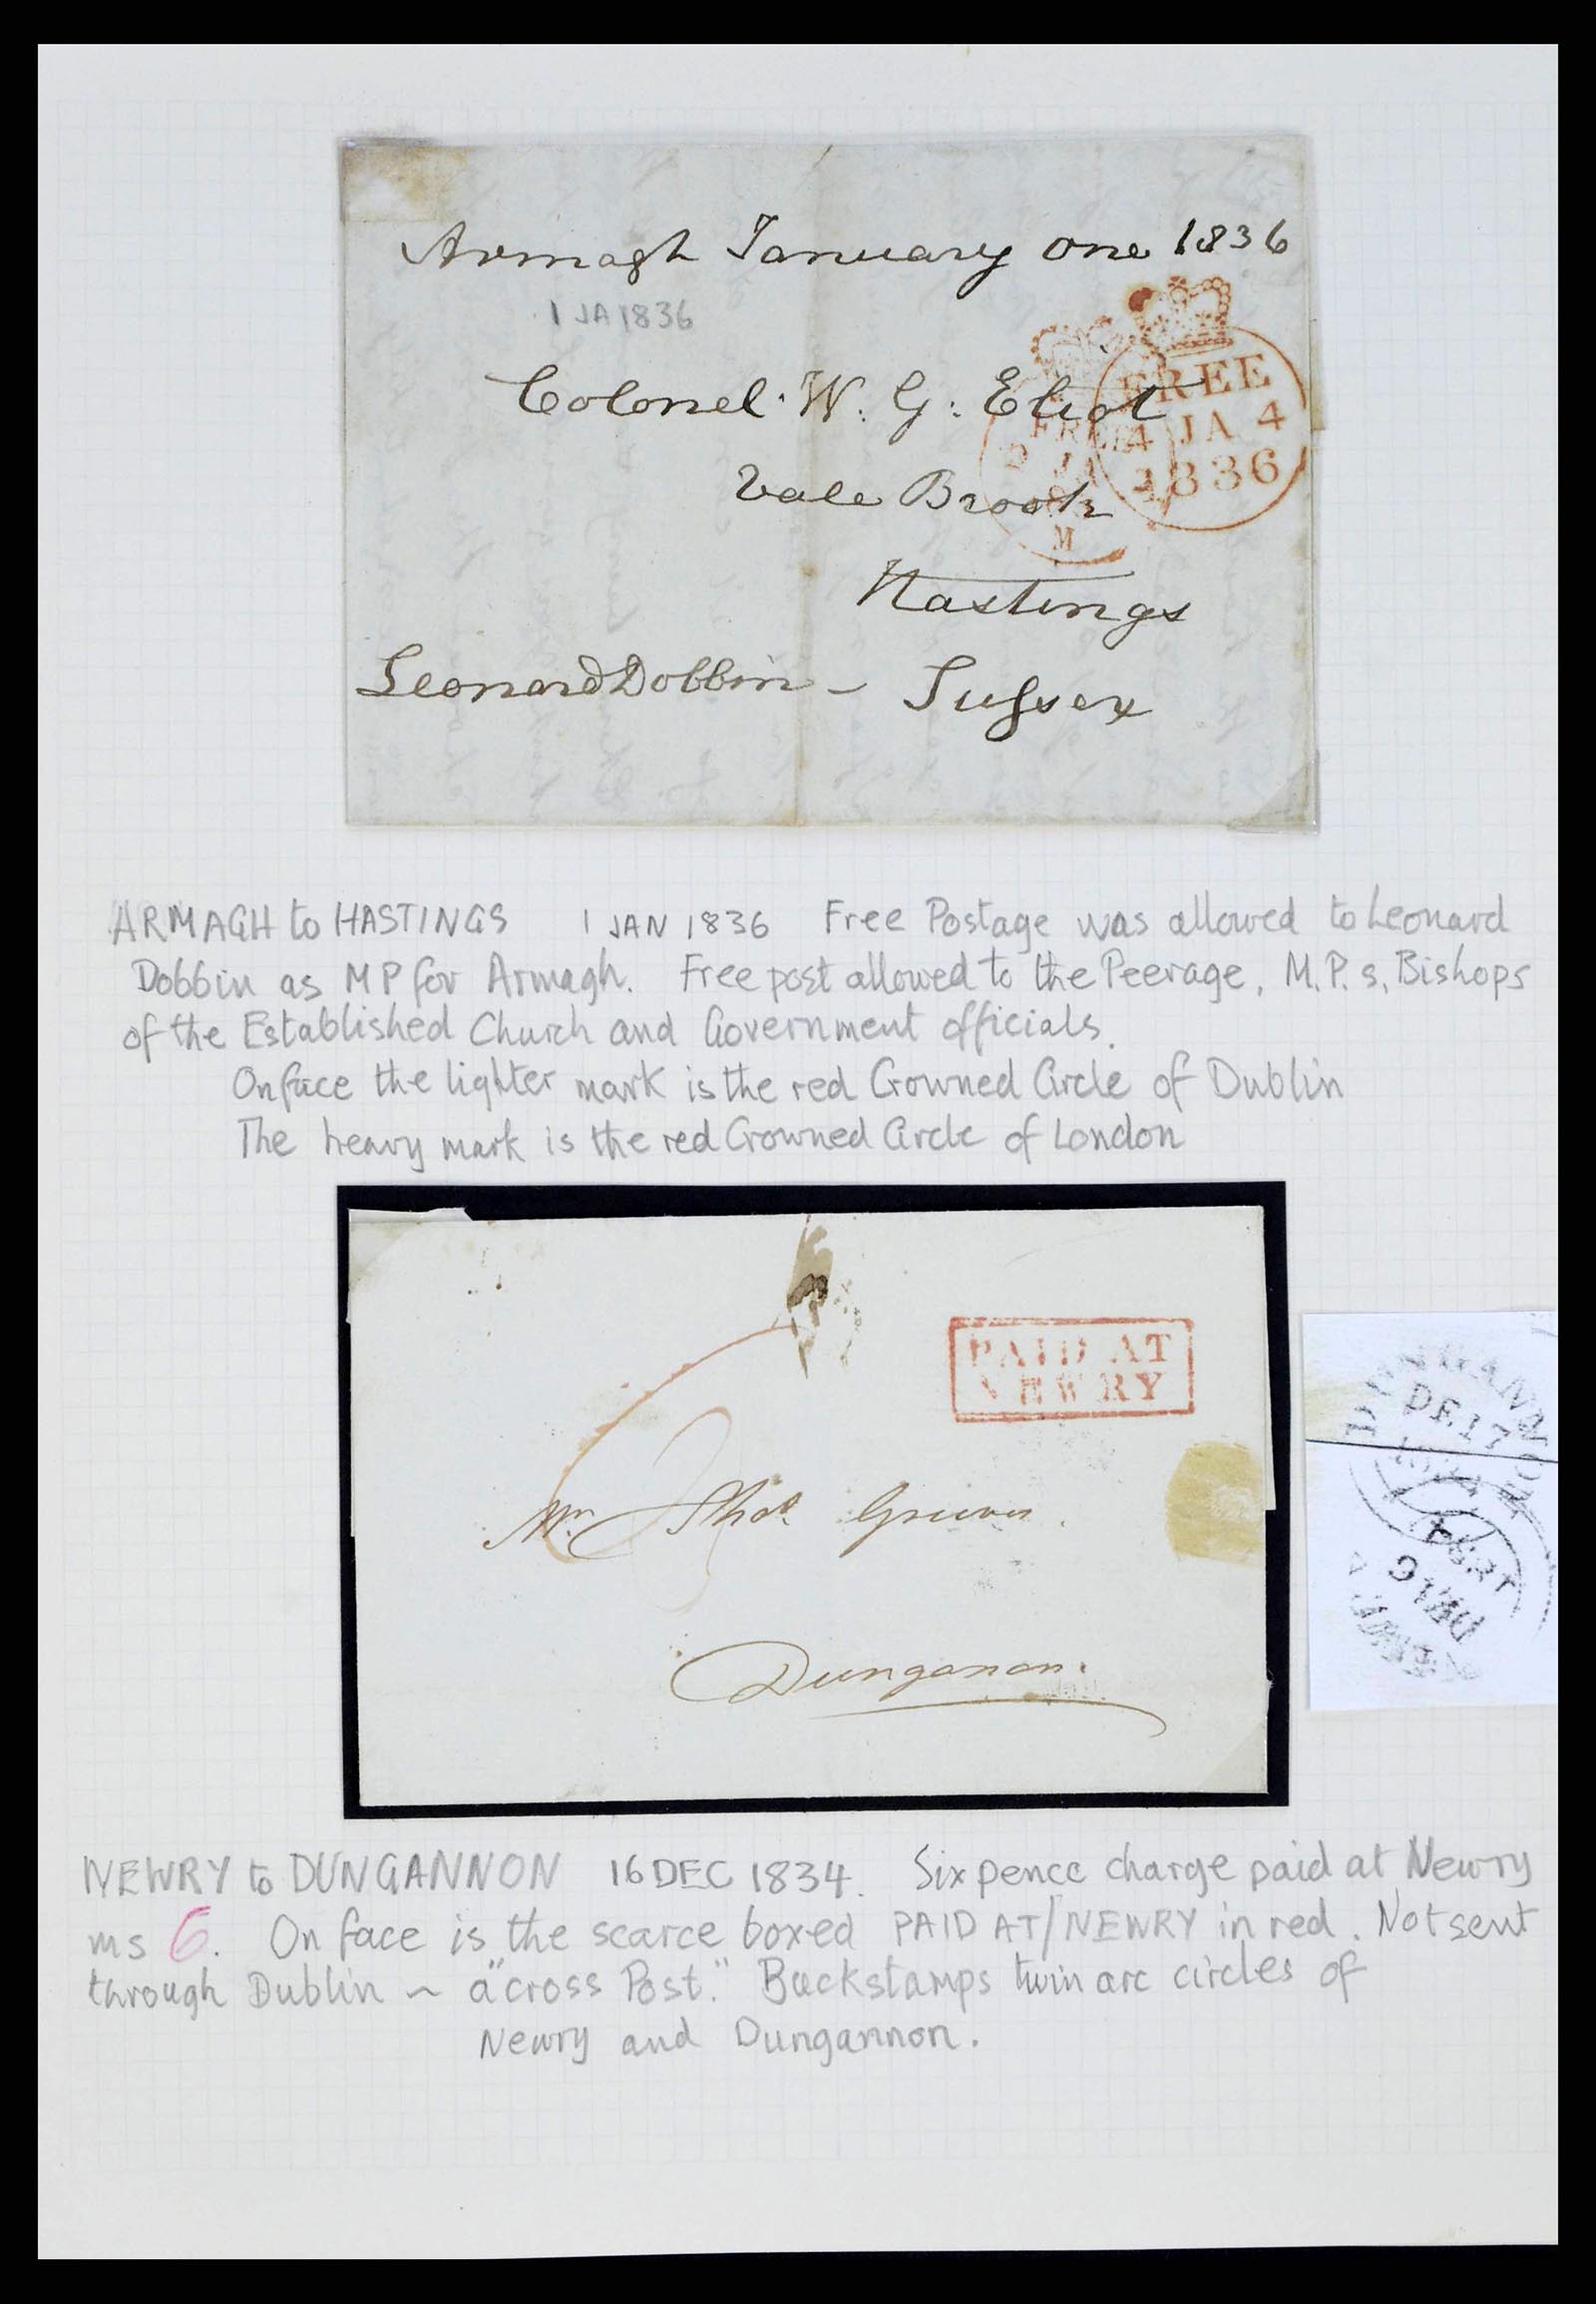 Armagh January one 1836
1 JA 1836
Colonel W: G: Eliot
FREE
4 JA 4
1836
FREE
2 JA
M
Vale Brook
Hastings
Leonard Dobbin – Sussex
ARMAGH to HASTINGS 1 JAN 1836 Free Postage was allowed to Leonard
Dobbin as MP for Armagh. Free post allowed to the Peerage, M.P.s, Bishops
of the Established Church and Government officials.
On face the lighter mark is the red Crowned Circle of Dublin
The heavy mark is the red Crowned Circle of London
PAID AT
NEWRY
6
Mr. Thos.
Dungannon.
DUNGANNON
DE 17
NEWRY to DUNGANNON 16 DEC 1834. Six pence charge paid at Newry
ms 6. On face is the scarce boxed PAID AT/NEWRY in red. Not sent
through Dublin ~ a "cross Post." Backstamps twin arc circles of
Newry and Dungannon.